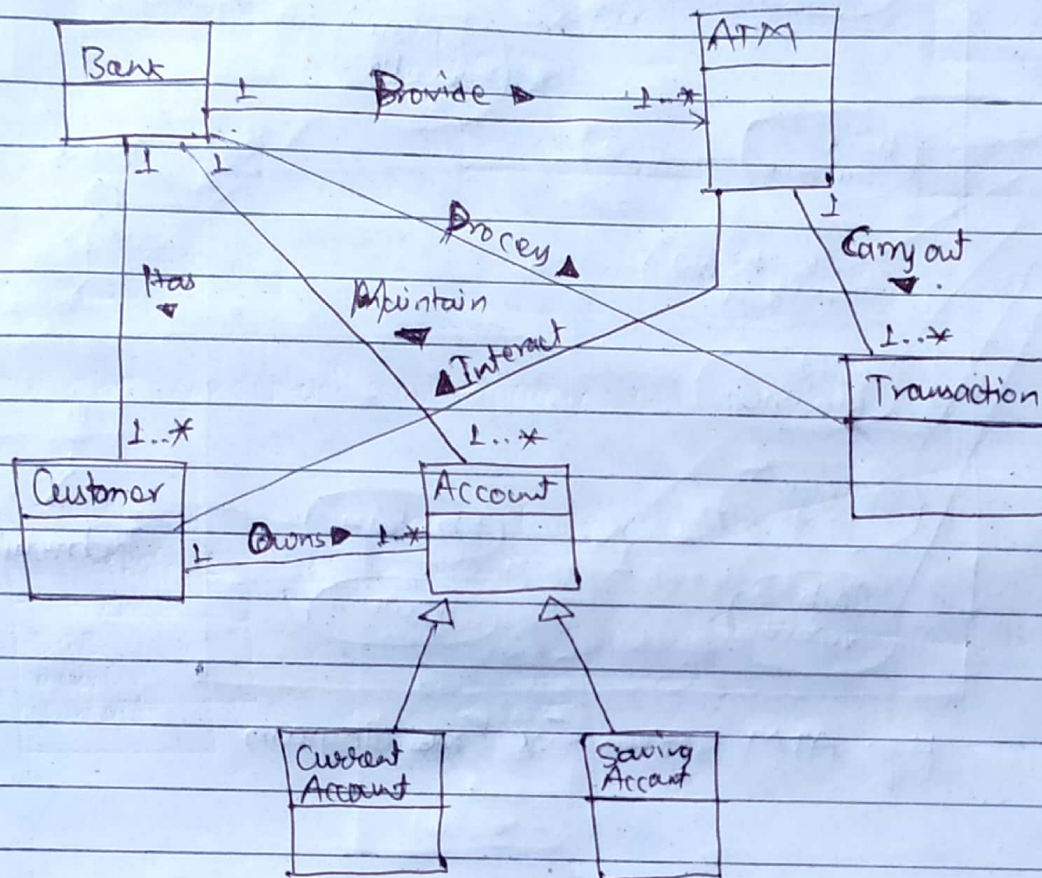 Bank
ATM
1 Provide ▶ 1..*
1
1
1
Process ▲
Carry out
▼
Has
▼
Maintain
◀
▲ Interact
1..*
Transaction
1..*
1..*
Customer
Account
1 Owns ▶ 1..*
Current
Account
Saving
Account